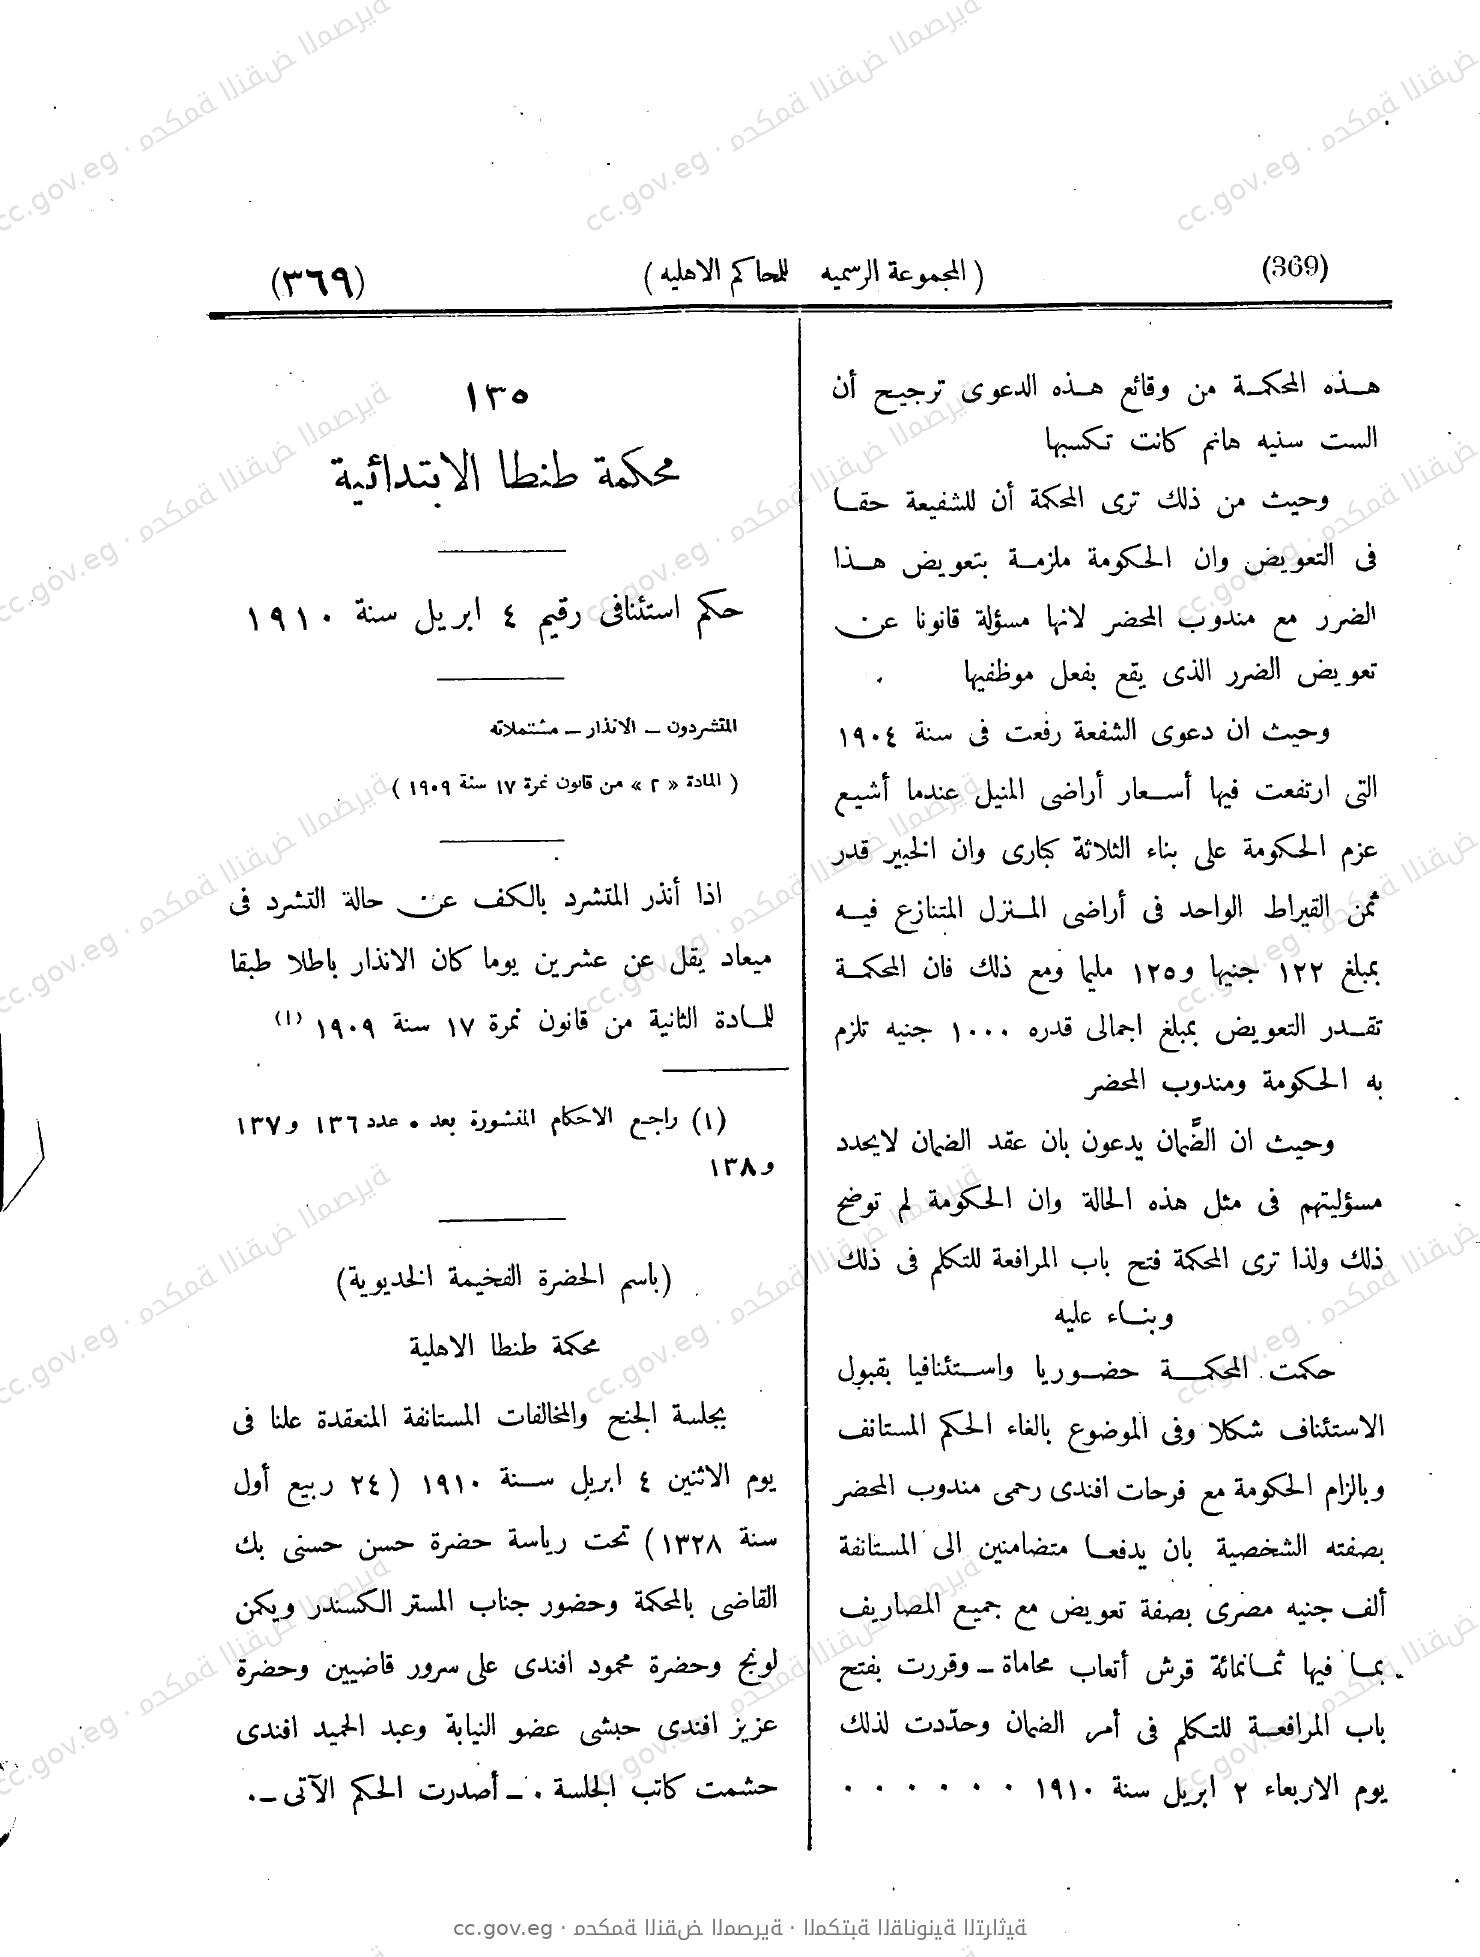 (369)
( المجموعة الرسميه للمحاكم الاهليه )
(٣٦٩)
هذه المحكمة من وقائع هذه الدعوى ترجيح أن
الست سنيه هانم كانت تكسبها
وحيث من ذلك ترى المحكمة أن للشفيعة حقا
فى التعويض وان الحكومة ملزمة بتعويض هذا
الضرر مع مندوب المحضر لانها مسؤلة قانونا عن
تعويض الضرر الذى يقع بفعل موظفيها
وحيث ان دعوى الشفعة رفعت فى سنة ١٩٠٤
التى ارتفعت فيها أسعار أراضى المنيل عندما أشيع
عزم الحكومة على بناء الثلاثة كبارى وان الخبير قدر
ثمن القيراط الواحد فى أراضى المنزل المتنازع فيه
بمبلغ ١٢٢ جنيها و١٢٥ مليما ومع ذلك فان المحكمة
تقدر التعويض بمبلغ اجمالى قدره ١٠٠٠ جنيه تلزم
به الحكومة ومندوب المحضر
وحيث ان الضَّمان يدعون بان عقد الضمان لايحدد
مسؤليتهم فى مثل هذه الحالة وان الحكومة لم توضح
ذلك ولذا ترى المحكمة فتح باب المرافعة للتكلم فى ذلك
وبناء عليه
حكمت المحكمة حضوريا واستئنافيا بقبول
الاستئناف شكلا وفى الموضوع بالغاء الحكم المستانف
وبالزام الحكومة مع فرحات افندى رحمى مندوب المحضر
بصفته الشخصية بان يدفعا متضامنين الى المستانفة
ألف جنيه مصرى بصفة تعويض مع جميع المصاريف
بما فيها ثمانمائة قرش أتعاب محاماة – وقررت بفتح
باب المرافعة للتكلم فى أمر الضمان وحدّدت لذلك
يوم الاربعاء ٢ ابريل سنة ١٩١٠ . . . . . .
١٣٥
محكمة طنطا الابتدائية
حكم استئنافى رقيم ٤ ابريل سنة ١٩١٠
المتشردون – الانذار – مشتملاته
( المادة « ٢ » من قانون نمرة ١٧ سنة ١٩٠٩ )
اذا أنذر المتشرد بالكف عن حالة التشرد فى
ميعاد يقل عن عشرين يوما كان الانذار باطلا طبقا
للمادة الثانية من قانون نمرة ١٧ سنة ١٩٠٩ (١)
(١) راجع الاحكام المنشورة بعد . عدد ١٣٦ و١٣٧
و١٣٨
(باسم الحضرة الفخيمة الخديوية)
محكمة طنطا الاهلية
بجلسة الجنح والمخالفات المستانفة المنعقدة علنا فى
يوم الاثنين ٤ ابريل سنة ١٩١٠ (٢٤ ربيع أول
سنة ١٣٢٨) تحت رياسة حضرة حسن حسنى بك
القاضى بالمحكمة وحضور جناب المستر الكسندر ويكمن
لونج وحضرة محمود افندى على سرور قاضيين وحضرة
عزيز افندى حبشى عضو النيابة وعبد الحميد افندى
حشمت كاتب الجلسة . – أصدرت الحكم الآتى –.
cc.gov.eg · محكمة النقض المصرية · المكتبة القانونية التراثية